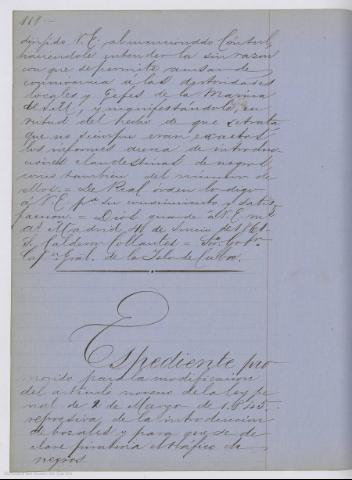 118.—
dirijido V.E. al mencionado Cónsul,
haciendole entender la sin razon
con que se permite acusar de
connivencia á las autoridades
locales y Gefes de la Marina
de S.M., y manifestándole, en
virtud del hecho de que se trata,
que no siempre eran exactos
los informes acerca de introduc
ciones clandestinas de negros,
como tambien del número de
ellos. = De Real órden lo digo
á V.E. pª su conocimiento y satis
faccion. = Dios guarde á V.E. mˢ
aˢ Madrid de Junio de 1861.
S. Calderon Collantes = Sor. Gobr.
Capn. Gral. de la Isla de Cuba.
Espediente pro
movido para la modificacion
del artículo noveno de la ley pe
nal de 2 de Marzo de 1845
represiva de la introduccion
de bozales y para que se de
clare piratería el tráfico de
negros.